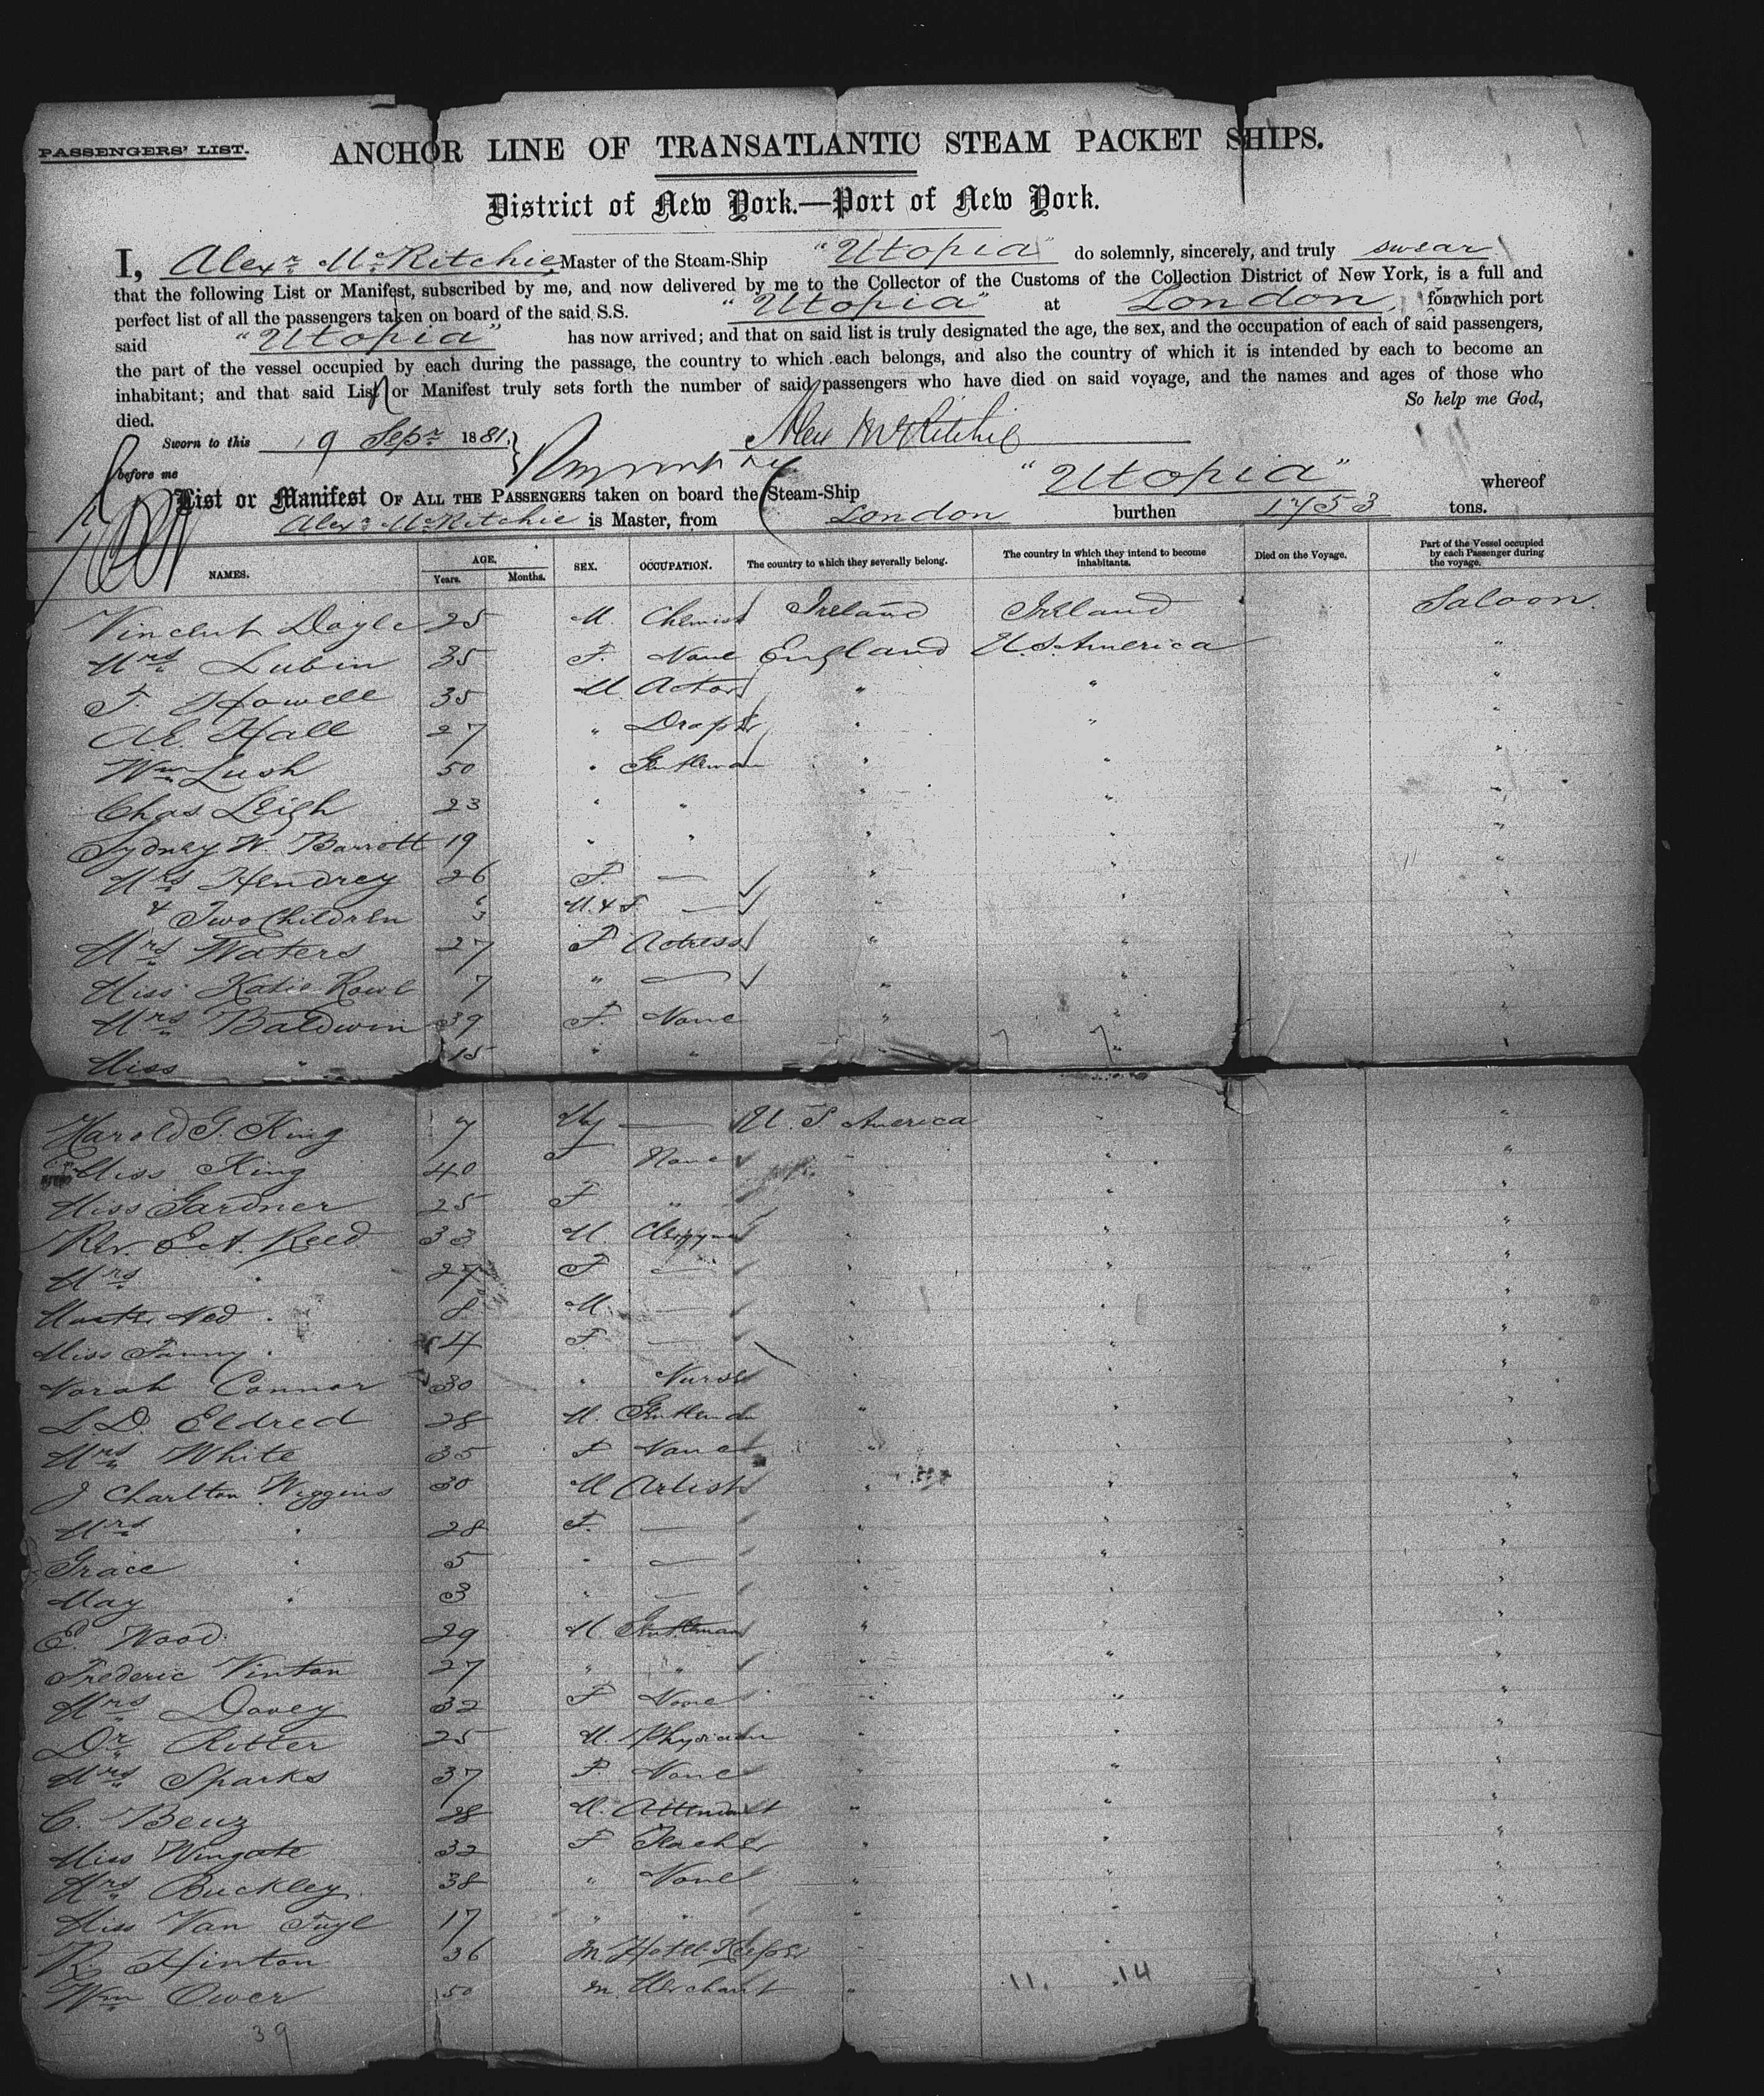 PASSENGERS' LIST.
ANCHOR LINE OF TRANSATLANTIC STEAM PACKET SHIPS.
District of New York.—Port of New York.
I, Alexr. McRitchie, Master of the Steam-Ship "Utopia" do solemnly, sincerely, and truly swear
that the following List or Manifest, subscribed by me, and now delivered by me to the Collector of the Customs of the Collection District of New York, is a full and
perfect list of all the passengers taken on board of the said S.S. "Utopia" at London, which port
said "Utopia" has now arrived; and that on said list is truly designated the age, the sex, and the occupation of each of said passengers,
the part of the vessel occupied by each during the passage, the country to which each belongs, and also the country of which it is intended by each to become an
inhabitant; and that said List or Manifest truly sets forth the number of said passengers who have died on said voyage, and the names and ages of those who
died. So help me God,
Sworn to this 9 Sepr. 1881. Alex McRitchie
before me
List or Manifest OF ALL THE PASSENGERS taken on board the Steam-Ship "Utopia" whereof
Alexr. McRitchie is Master, from London burthen 1753 tons.
NAMES. AGE. Years. Months. SEX. OCCUPATION. The country to which they severally belong. The country in which they intend to become inhabitants. Died on the Voyage. Part of the Vessel occupied by each Passenger during the voyage.
Vincent Doyle 25 M. Chemist Ireland Ireland Saloon.
Mrs Lubin 35 F. None England U.S. America "
F. Howell 35 M Actor " " "
A.E. Hall 27 " Draper " " "
Wm Lush 50 " Gentleman " " "
Chas Leigh 23 " " " " "
Sydney W. Barrott 19 " " " " "
Mrs Hendrey 26 F. — " " "
& Two Children 6 3 M. & F. — " " "
Mrs Waters 27 F Actress " " "
Miss Katie 7 " — " " "
Mrs Baldwin 39 F. None " " "
Miss " 15 " " " " "
Harold G. King 7 — U. S America " "
Miss King 40 None " " "
Miss Gardner 25 F " " " "
Rev. E.A. Reed 33 M. Clergyman " " "
Mrs " 27 F — " " "
Master Ned " 8 M. — " " "
Miss Fanny " 4 F. — " " "
Norah Connor 30 " Nurse " " "
L D. Eldred 28 M. Gentleman " " "
Mrs White 35 F None " " "
J Charlton Wiggins 30 M Artist " " "
Mrs " 28 F. — " " "
Grace " 5 " — " " "
May " 3 " — " " "
E. Wood 29 M Gentleman " " "
Frederic Vinton 27 " " " " "
Mrs Davey 32 F None " " "
Dr Ritter 25 M. Physician " " "
Mrs Sparks 37 F. None " " "
C. Benz 28 M. Attendant " " "
Miss Wingate 32 F Teacher " " "
Mrs Buckley 38 " None " " "
Miss Van Tuyl 17 " " " " "
R. Hinton 36 M. Hotel Keeper " " "
Wm Ower 50 M. Merchant " 11. 14 "
39